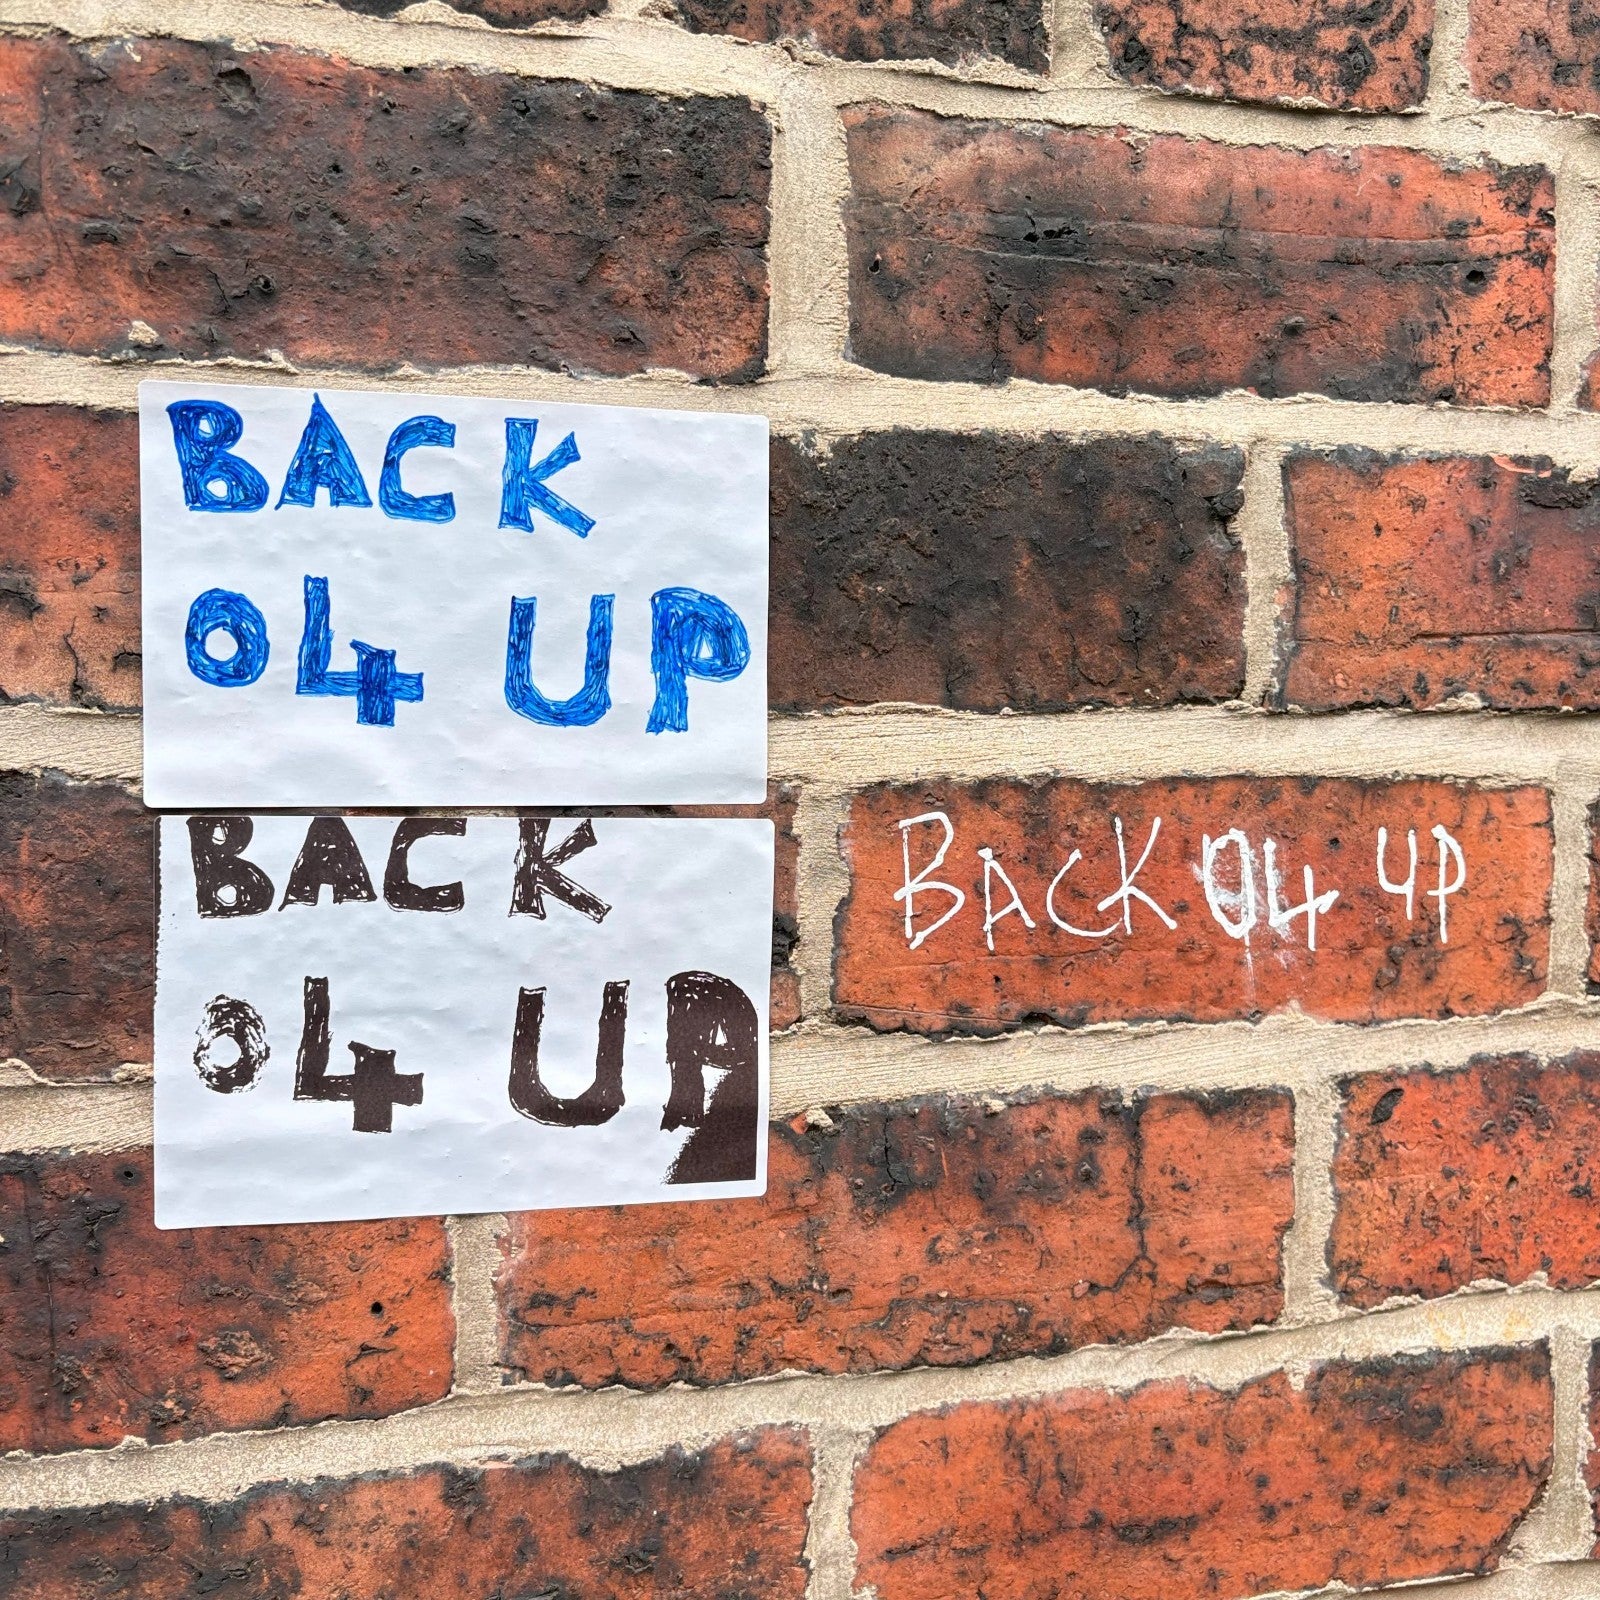 BACK
04 UP
BACK
04 UP
BACK 04 UP